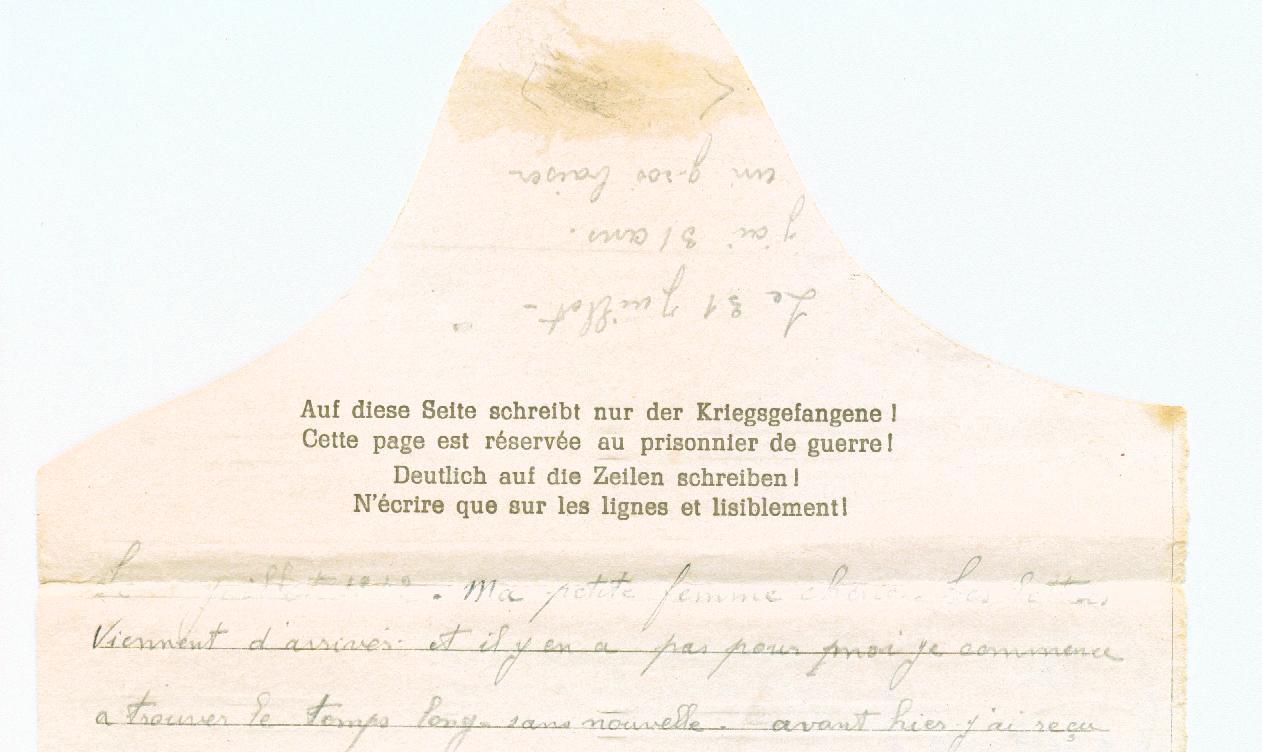 un gros baiser
j'ai 31 ans.
Le 31 Juillet -
Auf diese Seite schreibt nur der Kriegsgefangene !
Cette page est réservée au prisonnier de guerre !
Deutlich auf die Zeilen schreiben !
N'écrire que sur les lignes et lisiblement !
Le juillet . Ma petite femme cherie. Les lettres
Viennent d'arriver et il y en a pas pour moi je commence
a trouver le temps long sans nouvelle. avant hier j'ai reçu